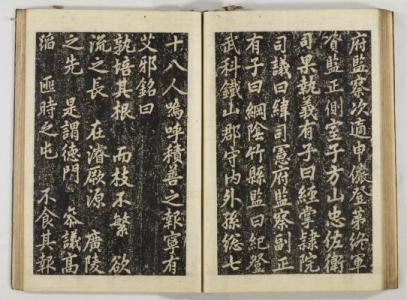 府監察次適申儼登第終軍
資監正側室子方山忠佐衛
司果執義有子曰經掌隸院
司議曰緯司憲府監察副正
有子曰綱陰竹縣監曰紀登
武科鐵山郡守內外孫總七
十八人嗚呼積善之報寧有
艾邪銘曰
孰培其根 而枝不繁 欲
流之長 在濬厥源 廣陵
之先 是謂德門 叅議高
蹈 匪時之屯 不食其報